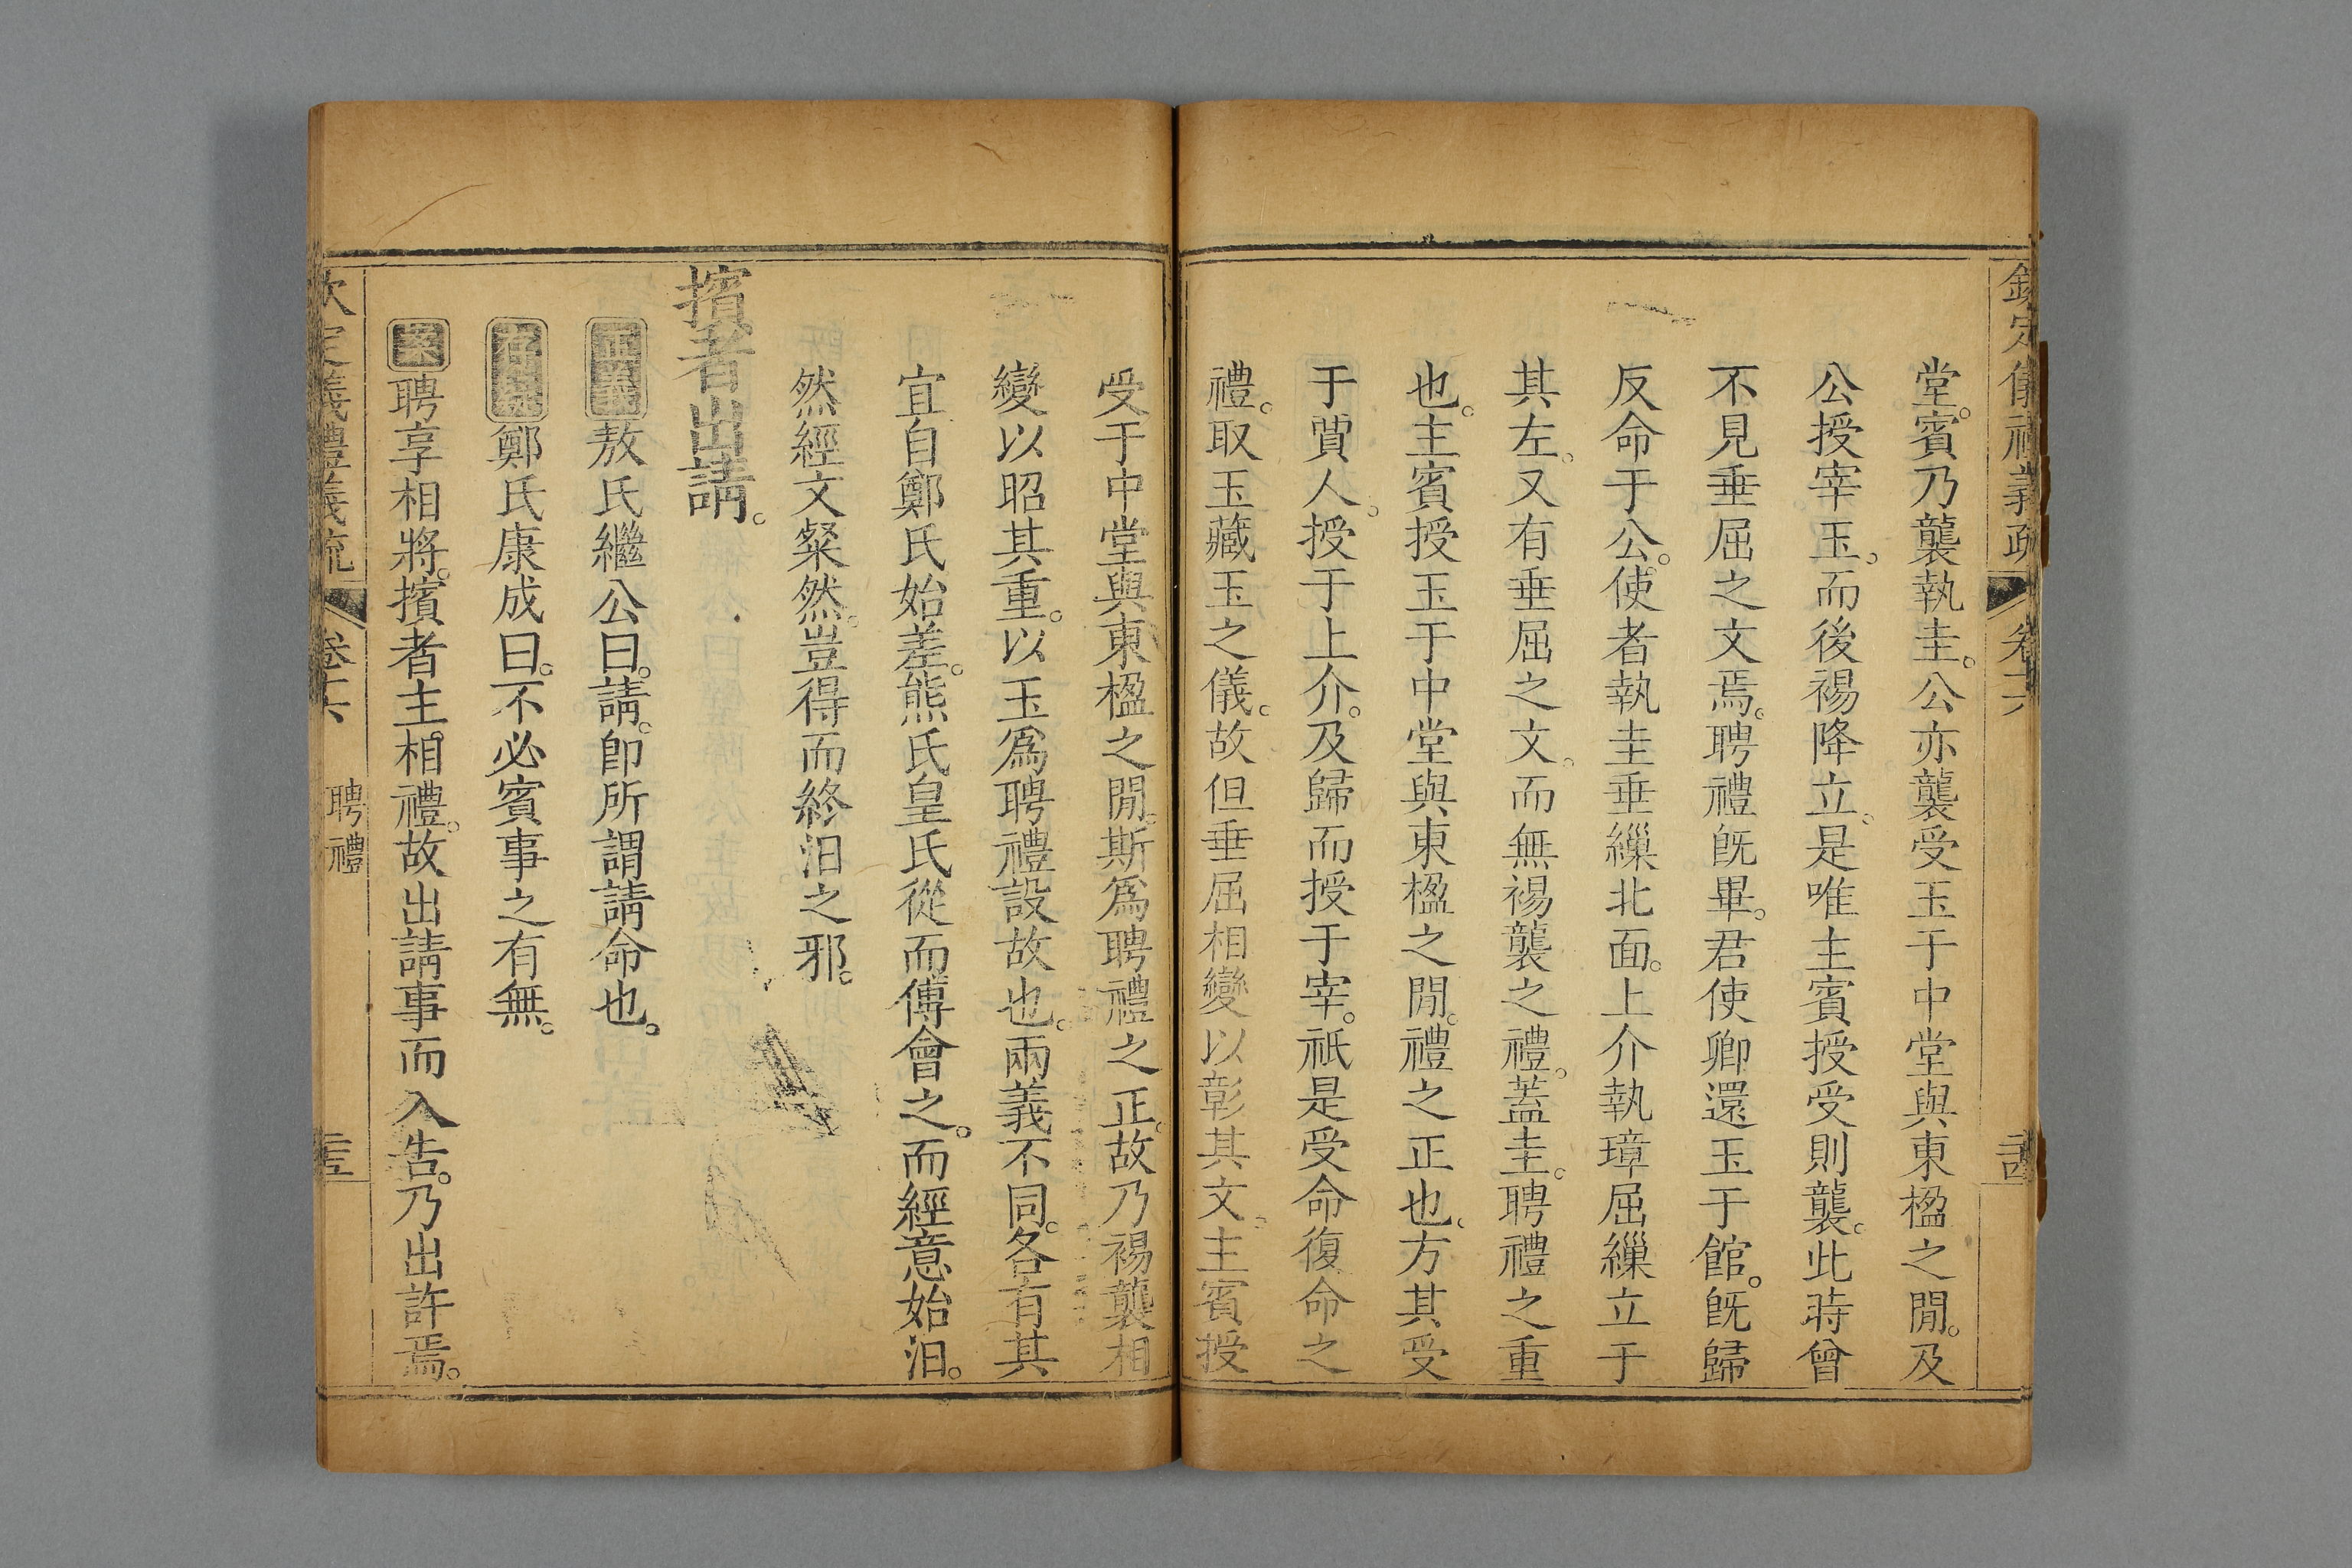 欽定儀禮義疏 卷十六
堂。賓乃襲執圭。公亦襲受玉于中堂與東楹之閒。及
公授宰玉。而後裼降立。是唯主賓授受則襲。此時曾
不見垂屈之文焉。聘禮旣畢。君使卿還玉于館。旣歸
反命于公。使者執圭垂繅北面。上介執璋屈繅立于
其左。又有垂屈之文。而無裼襲之禮。蓋圭。聘禮之重
也。主賓授玉于中堂與東楹之閒。禮之正也。方其受
于賈人。授于上介。及歸而授于宰。祇是受命復命之
禮。取玉藏玉之儀。故但垂屈相變以彰其文。主賓授
受于中堂與東楹之閒。斯爲聘禮之正。故乃裼襲相
變以昭其重。以玉爲聘禮設故也。兩義不同。各有其
宜自鄭氏始差。熊氏皇氏從而傅會之。而經意始汩。
然經文粲然。豈得而終汩之邪。
擯者出請。
正義敖氏繼公曰。請。卽所謂請命也。
存疑鄭氏康成曰。不必賓事之有無。
案聘享相將。擯者主相禮。故出請事而入告。乃出許焉。
欽定儀禮義疏 卷十六 聘禮